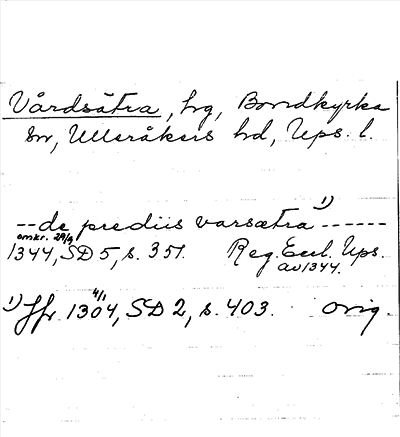 Vårdsätra, hg, Bondkyrka
sn, Ulleråkers hd, Ups. l.
-- de prediis varsætra 1) ------
omkr. 29/9
1344, SD 5, s. 351. Reg. Eccl. Ups.
av 1344.
1) Jfr 1304 4/1, SD 2, s. 403. orig.